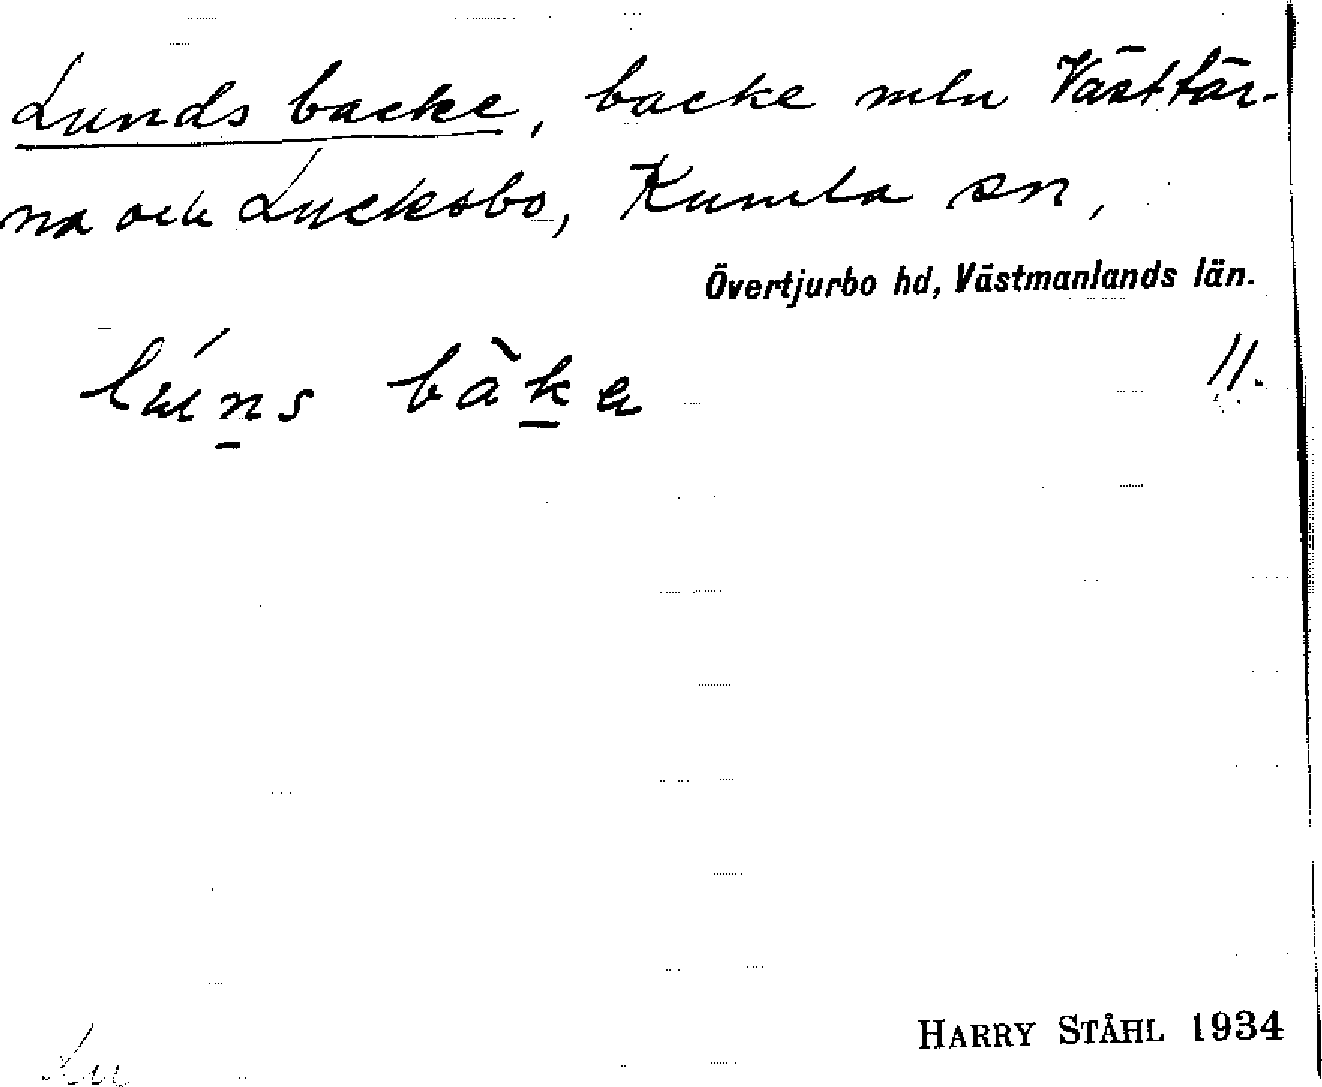 Lunds backe, backe mln Västtär-
na och Lucksbo, Kumla sn,
Övertjurbo hd, Västmanlands län.
lúns bàka
11.
HARRY STÅHL 1934